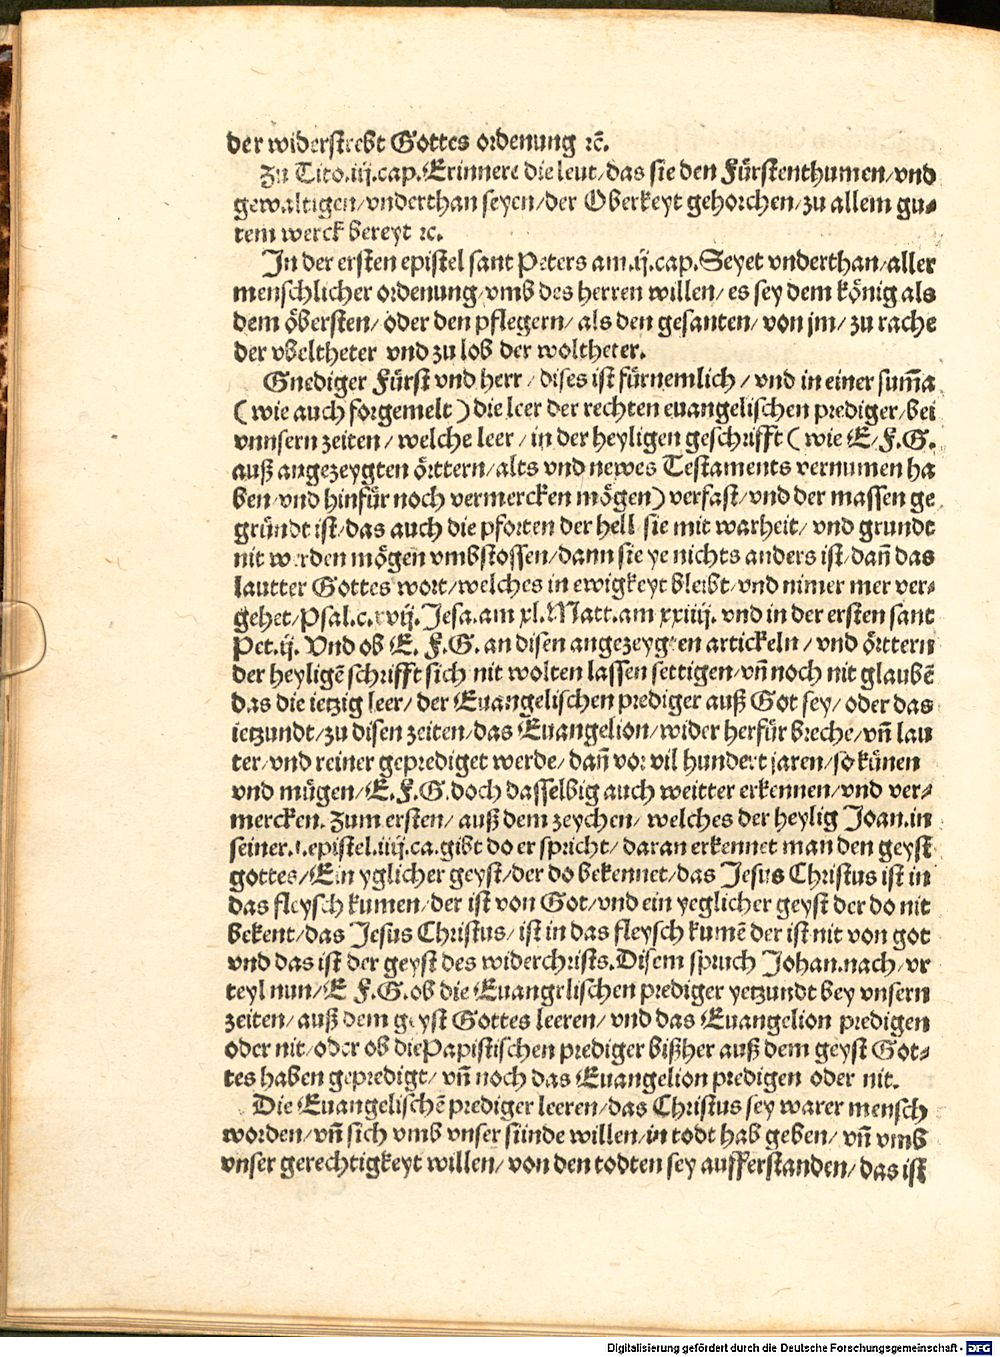 der widerstrebt Gottes ordenung ꝛc̄.
Zu Tito.iij.cap.Erinnere die leut/das sie den Fürstenthumen/vnd
gewaltigen/vnderthan seyen/der Oberkeyt gehorchen/zu allem gu⸗
tem werck bereyt ꝛc.
In der ersten epistel sant Peters am.ij.cap.Seyet vnderthan/aller
menschlicher ordenung/vmb des herren willen/es sey dem könig als
dem öbersten/oder den pflegern/als den gesanten/von jm/zu rache
der vbeltheter vnd zu lob der woltheter.
Gnediger Fürst vnd herr/dises ist fürnemlich/vnd in einer sum̄a
(wie auch forgemelt) die leer der rechten euangelischen prediger/bei
vnnsern zeiten/welche leer/in der heyligen geschrifft (wie E.F.G.
auß angezeygten örttern/alts vnd newes Testaments vernumen ha
ben/vnd hinfür noch vermercken mögen) verfast/vnd der massen ge
gründt ist/das auch die pforten der hell sie mit warheit/vnd grundt
nit werden mögen vmbstossen/dann sie ye nichts anders ist/dan̄ das
lautter Gottes wort/welches in ewigkeyt bleibt/vnd nimer mer ver⸗
gehet/Psal.c.xvij. Jesa.am xl.Matt.am xxiiij. vnd in der ersten sant
Pet.ij. Vnd ob E. F.G. an disen angezeygten artickeln/vnd örttern
der heyligē schrifft sich nit wolten lassen settigen/vn̄ noch nit glaubē
das die ietzig leer/der Euangelischen prediger auß Got sey/oder das
ietzundt/zu disen zeiten/das Euangelion/wider herfür breche/vn̄ lau
ter/vnd reiner geprediget werde/dan̄ vor vil hundert jaren/so künen
vnd mügen/E.F.G.doch dasselbig auch weitter erkennen/vnd ver⸗
mercken. Zum ersten/auß dem zeychen/welches der heylig Joan.in
seiner.i.epistel.iiij.ca.gibt do er spricht/daran erkennet man den geyst
gottes/Ein yglicher geyst/der do bekennet/das Jesus Christus ist in
das fleysch kumen/der ist von Got/vnd ein yeglicher geyst der do nit
bekent/das Jesus Christus/ist in das fleysch kumē der ist nit von got
vnd das ist der geyst des widerchrists.Disem spruch Johan.nach/vr
teyl nun/E F.G.ob die Euangelischen prediger yetzundt bey vnsern
zeiten/auß dem geyst Gottes leeren/vnd das Euangelion predigen
oder nit/oder ob die Papistischen prediger bißher auß dem geyst Got⸗
tes haben gepredigt/vn̄ noch das Euangelion predigen oder nit.
Die Euangelischē prediger leeren/das Christus sey warer mensch
worden/vn̄ sich vmb vnser sünde willen/in todt hab geben/vn̄ vmb
vnser gerechtigkeyt willen/von den todten sey aufferstanden/das ist
Digitalisierung gefördert durch die Deutsche Forschungsgemeinschaft - DFG